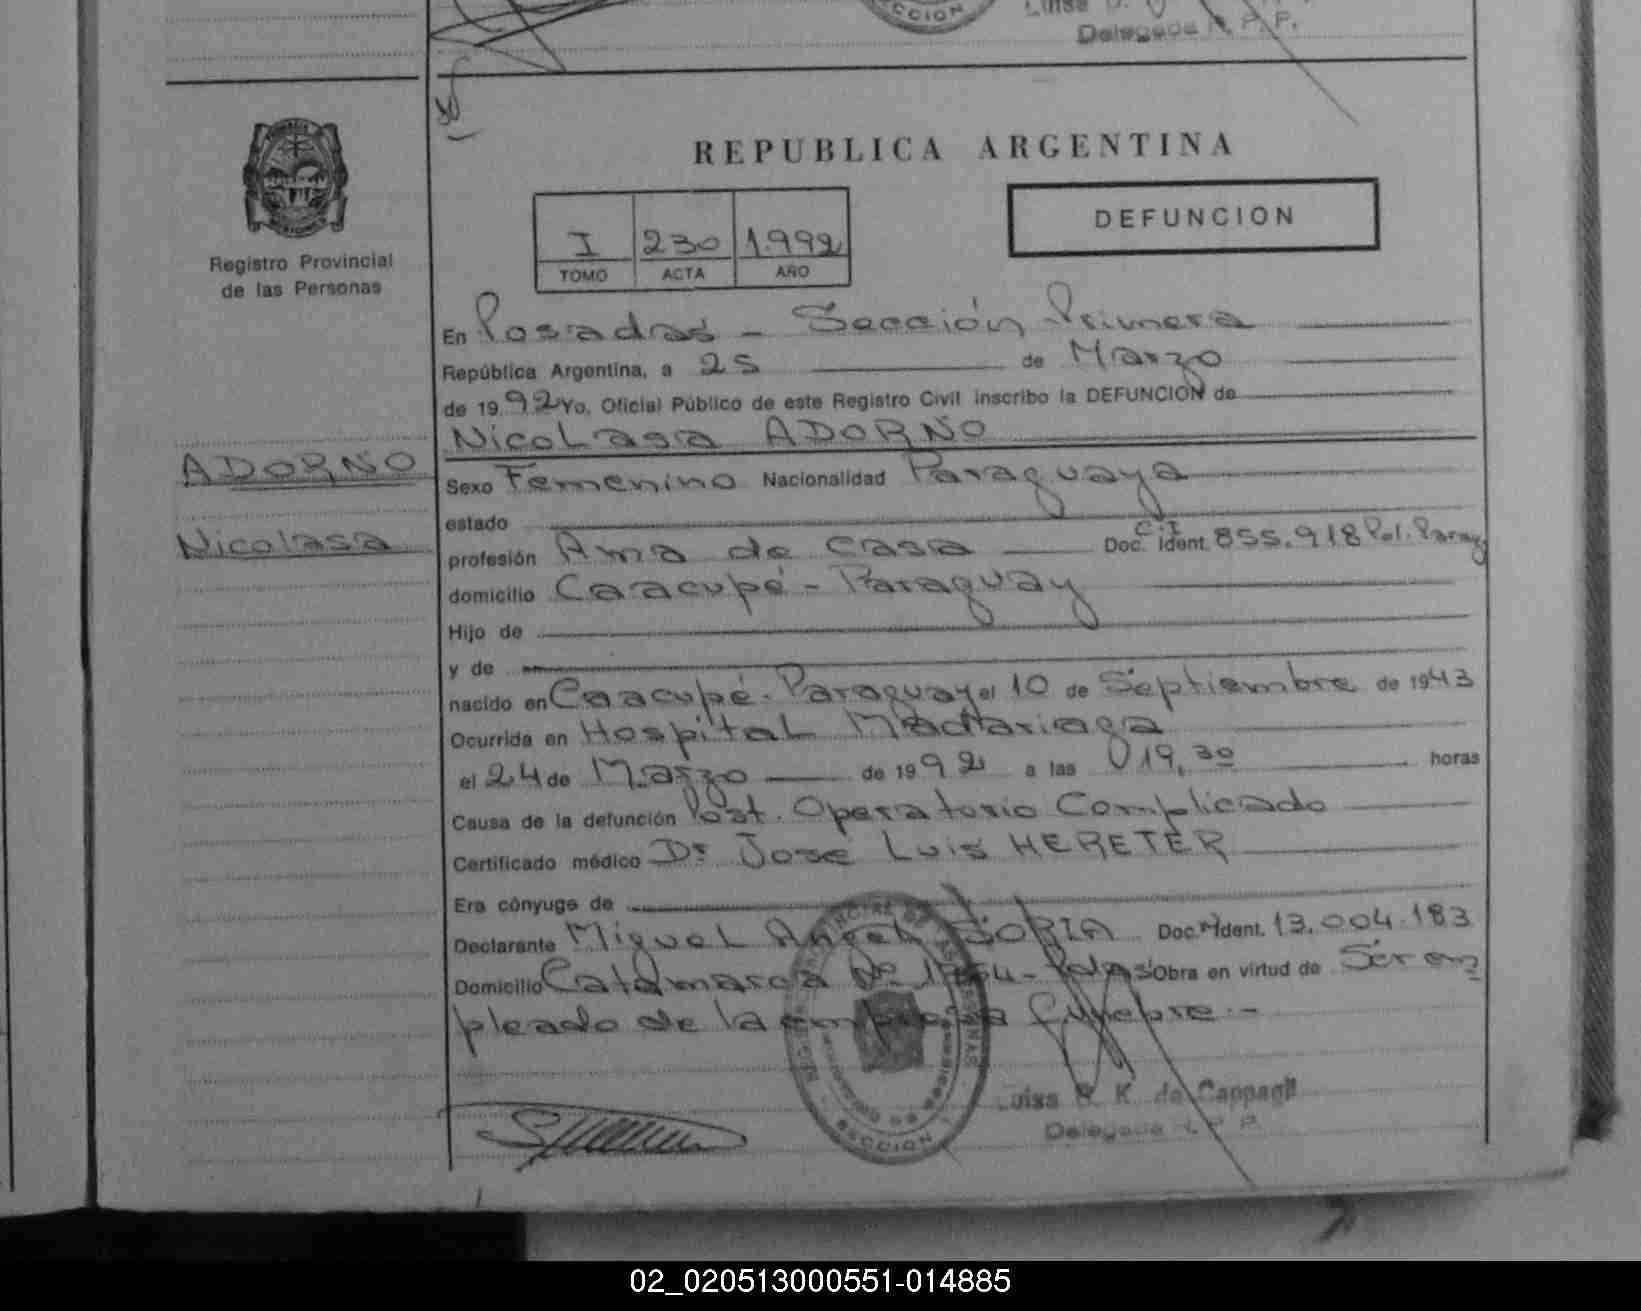 SECCION
Delegada R. P. P.
REPUBLICA ARGENTINA
DEFUNCION
I 230 1.992
TOMO ACTA AÑO
Registro Provincial
de las Personas
En Posadas - Sección Primera
República Argentina, a 25 de Marzo
de 1992 Yo, Oficial Público de este Registro Civil inscribo la DEFUNCION de
Nicolasa ADORNO
ADORNO
Nicolasa
Sexo Femenino Nacionalidad Paraguaya
estado
profesión Ama de casa Doc. C.I Ident. 855.918 Pol. Parag
domicilio Caacupé - Paraguay
Hijo de
y de
nacido en Caacupé. Paraguay el 10 de Septiembre de 1943
Ocurrida en Hospital Madariaga
el 24 de Marzo de 1992 a las 19,30 horas
Causa de la defunción Post. Operatorio Complicado
Certificado médico Dr José Luis HERETER
Era cónyuge de
Declarante Miguel Angel SORIA Doc. N Ident. 13.004.183
Domicilio Catamarca Nº - Pdas Obra en virtud de Ser em
pleado de la empresa fúnebre. -
Luisa K. de Cappagli
Delegada R. P. P.
SECCION
02_020513000551-014885